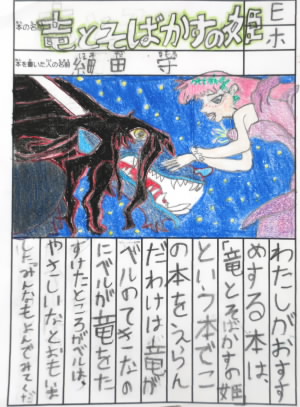 本の名前 竜とそばかすの姫
E
ホ
本を書いた人の名前 細田守
わたしがおすす
めする本は、
「竜とそばかすの姫」
という本でこ
の本をえらん
だわけは竜が
ベルのてきなの
にベルが竜をた
すけたところがベルは、
やさしいなとおもいま
した。みんなもよんでみてくだ